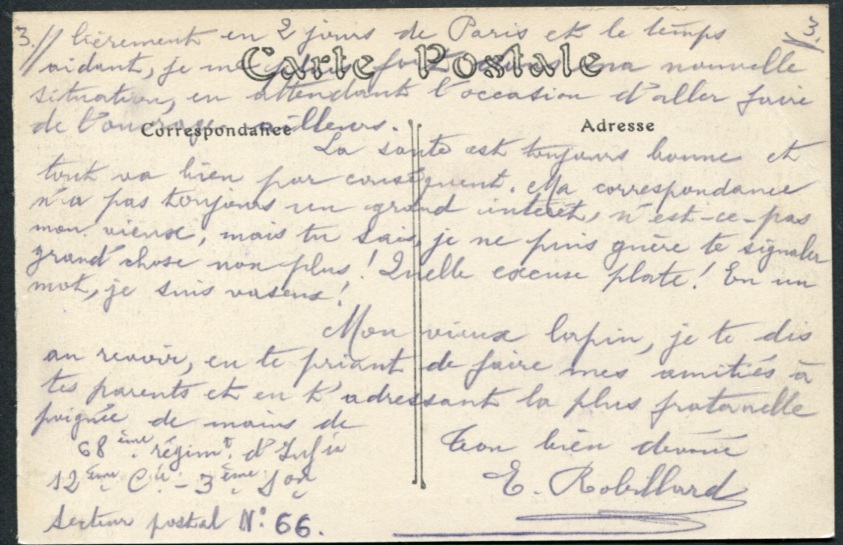 3. // lièrement en 2 jours de Paris et le temps
3.
Carte Postale
aidant, je me fort dans ma nouvelle
situation, en attendant l'occasion d'aller faire
de l'ouvrage ailleurs.
Correspondance
Adresse
La santé est toujours bonne et
tout va bien par conséquent. Ma correspondance
n'a pas toujours un grand intérêt, n'est-ce-pas
mon vieux, mais tu sais, je ne puis guère te signaler
grand'chose non plus! Quelle excuse plate! En un
mot, je suis vaseux!
Mon vieux lapin, je te dis
au revoir, en te priant de faire mes amitiés à
tes parents et en t'adressant la plus fraternelle
poignée de mains de
Ton bien dévoué
E. Robillard
68ème régimt d'Infie
12ème Cie - 3ème Son
Secteur postal N° 66.